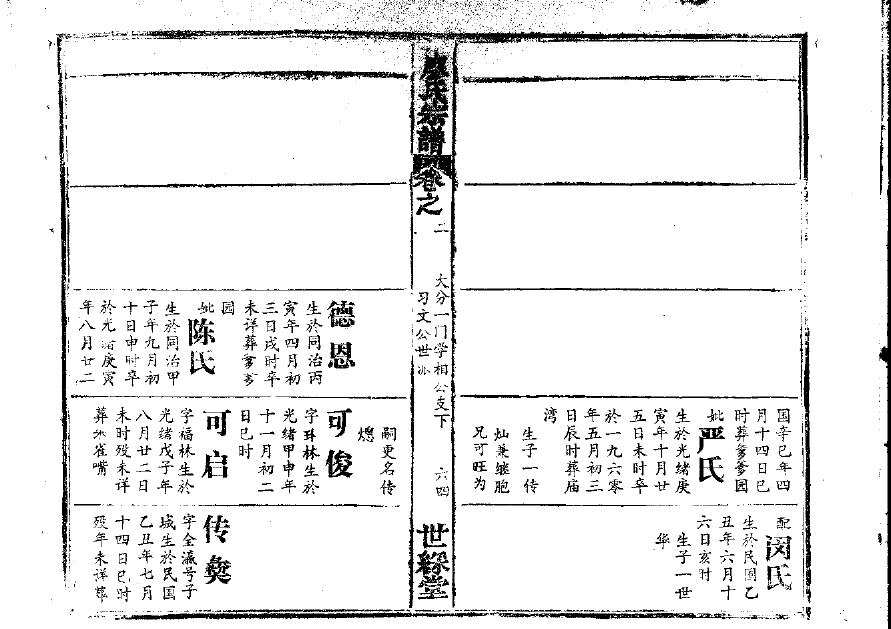 国辛巳年四
月十四日巳
时葬爹爹园
妣严氏
生於光绪庚
寅年十月廿
五日未时卒
於一九六零
年五月初三
日辰时葬庙
湾
生子一传
灿兼继胞
兄可旺为
配闵氏
生於民国乙
丑年六月十
六日亥时
生子一世
华
廖氏宗譜
卷之
二
大分一门学相公支下
习文公世派
六四
世綵堂
德恩
生於同治丙
寅年四月初
三日戌时卒
未详葬爹爹
园
妣陈氏
生於同治甲
子年九月初
十日申时卒
於光绪庚寅
年八月廿二
嗣更名传
可俊
字珠林生於
光绪甲申年
十一月初二
日巳时
可启
字福林生於
光绪戊子年
八月廿二日
未时殁未详
葬 雀嘴
传
字全瀛号子
城生於民国
乙丑年七月
十四日巳时
殁年未详葬